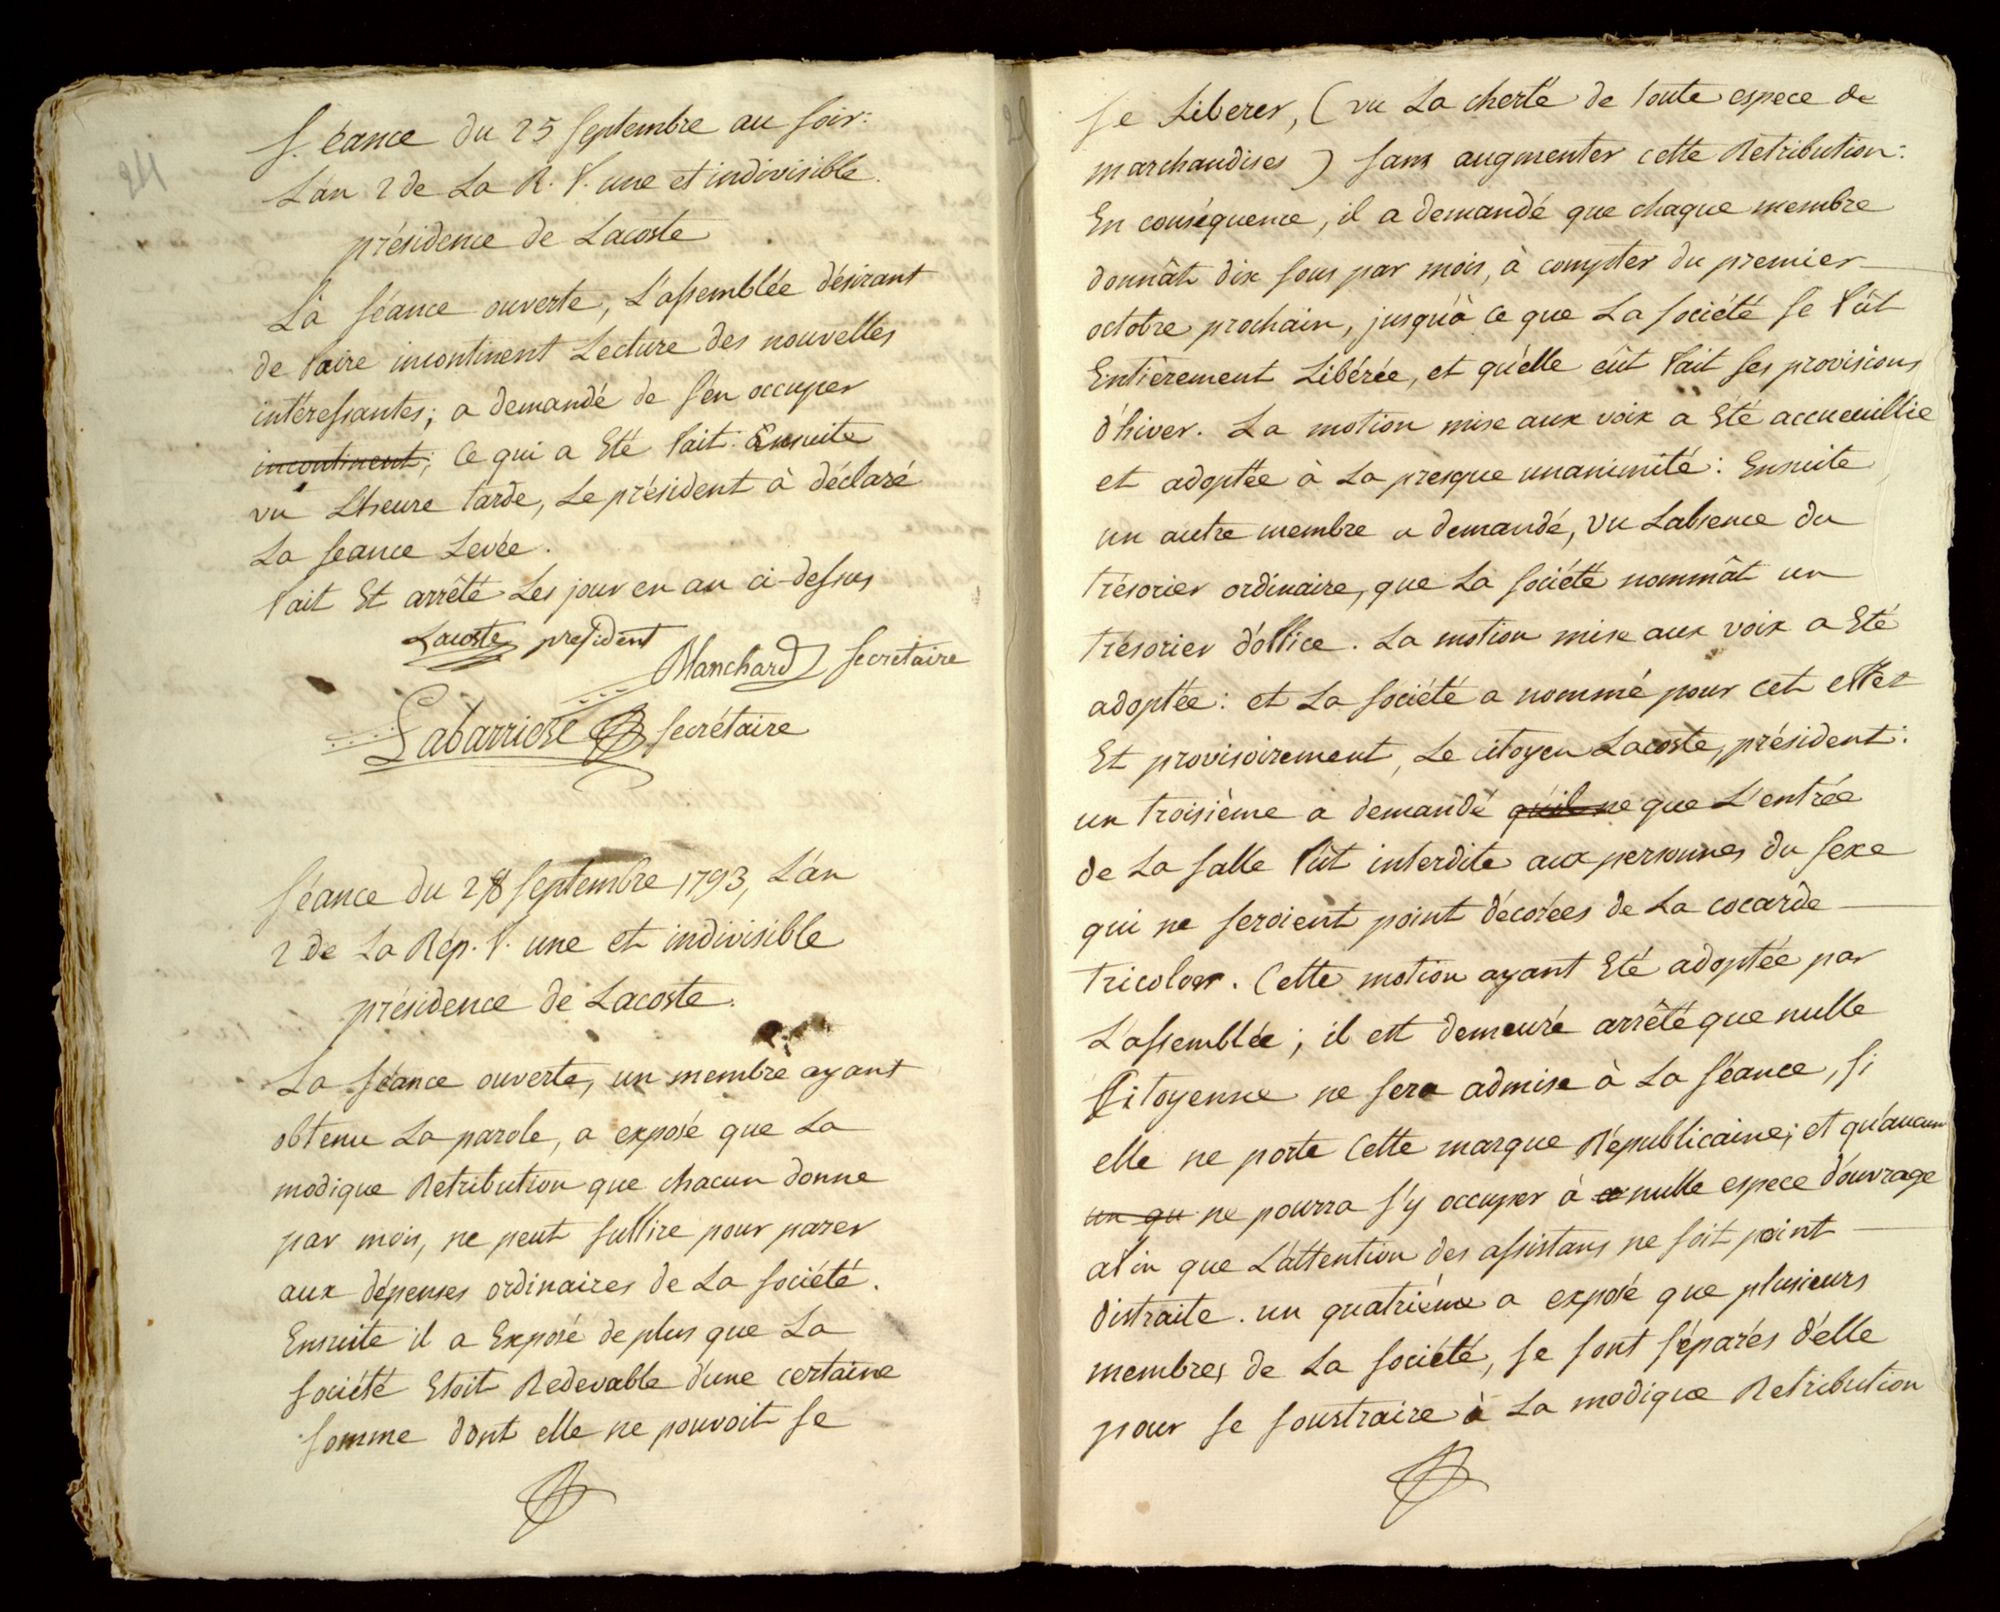 Séance du 25 Septembre au soir:
L'an 2 de La R. f. une et indivisible.
présidence de Lacoste
La séance ouverte, L'assemblée désirant
de faire incontinent Lecture des nouvelles
intéressantes; a demandé de s'en occuper
incontinent; Ce qui a Eté fait. Ensuite
vu L'heure tarde, Le président à déclaré
La séance Levée.
fait Et arrêté Les jour en an ci-dessus
Lacoste président
Manchard Secretaire
Labarriere Secrétaire
Séance du 28 Septembre 1793, L'an
2 de La Rép. f. une et indivisible
présidence de Lacoste.
La séance ouverte, un membre ayant
obtenu La parole, a exposé que La
modique Retribution que chacun donne
par mois, ne peut suffire pour parer
aux dépenses ordinaires de La société.
Ensuite il a Exposé de plus que La
société Etoit Redevable d'une certaine
somme dont elle ne pouvoit se
se Liberer, (vu La cherté de toute espece de
marchandises) sans augmenter cette Retribution:
En conséquence, il a demandé que chaque membre
donnât dix sous par mois, à compter du premier
octobre prochain, jusqu'à Ce que La société se fût
Entièrement Libérée, et qu'elle eût fait ses provisions
d'hiver. La motion mise aux voix a Eté accueuillie
et adoptée à La presque unanimité: Ensuite
un autre membre a demandé, Vu L'absence du
trésorier ordinaire, que La société nommât un
trésorier d'office. La motion mise aux voix a Eté
adoptée: et La société a nommé pour cet effet
Et provisoirement, Le citoyen Lacoste, président:
un troisième a demandé qu'il ne que L'entrée
de La salle fût interdite aux personnes du sexe
qui ne seroient point décorées de La cocarde
tricolor. Cette motion ayant Eté adoptée par
L'assemblée; il est demeuré arrêté que nulle
Citoyenne ne sera admise à La séance, si
elle ne porte Cette marque Républicaine; et qu'aucun
un qu ne pourra s'y occuper à nulle espece d'ouvrage
afin que L'attention des assistans ne soit point
distraite. un quatriéme a exposé que plusieurs
membres de La société, se sont séparés d'elle
pour se soustraire à La modique Retribution